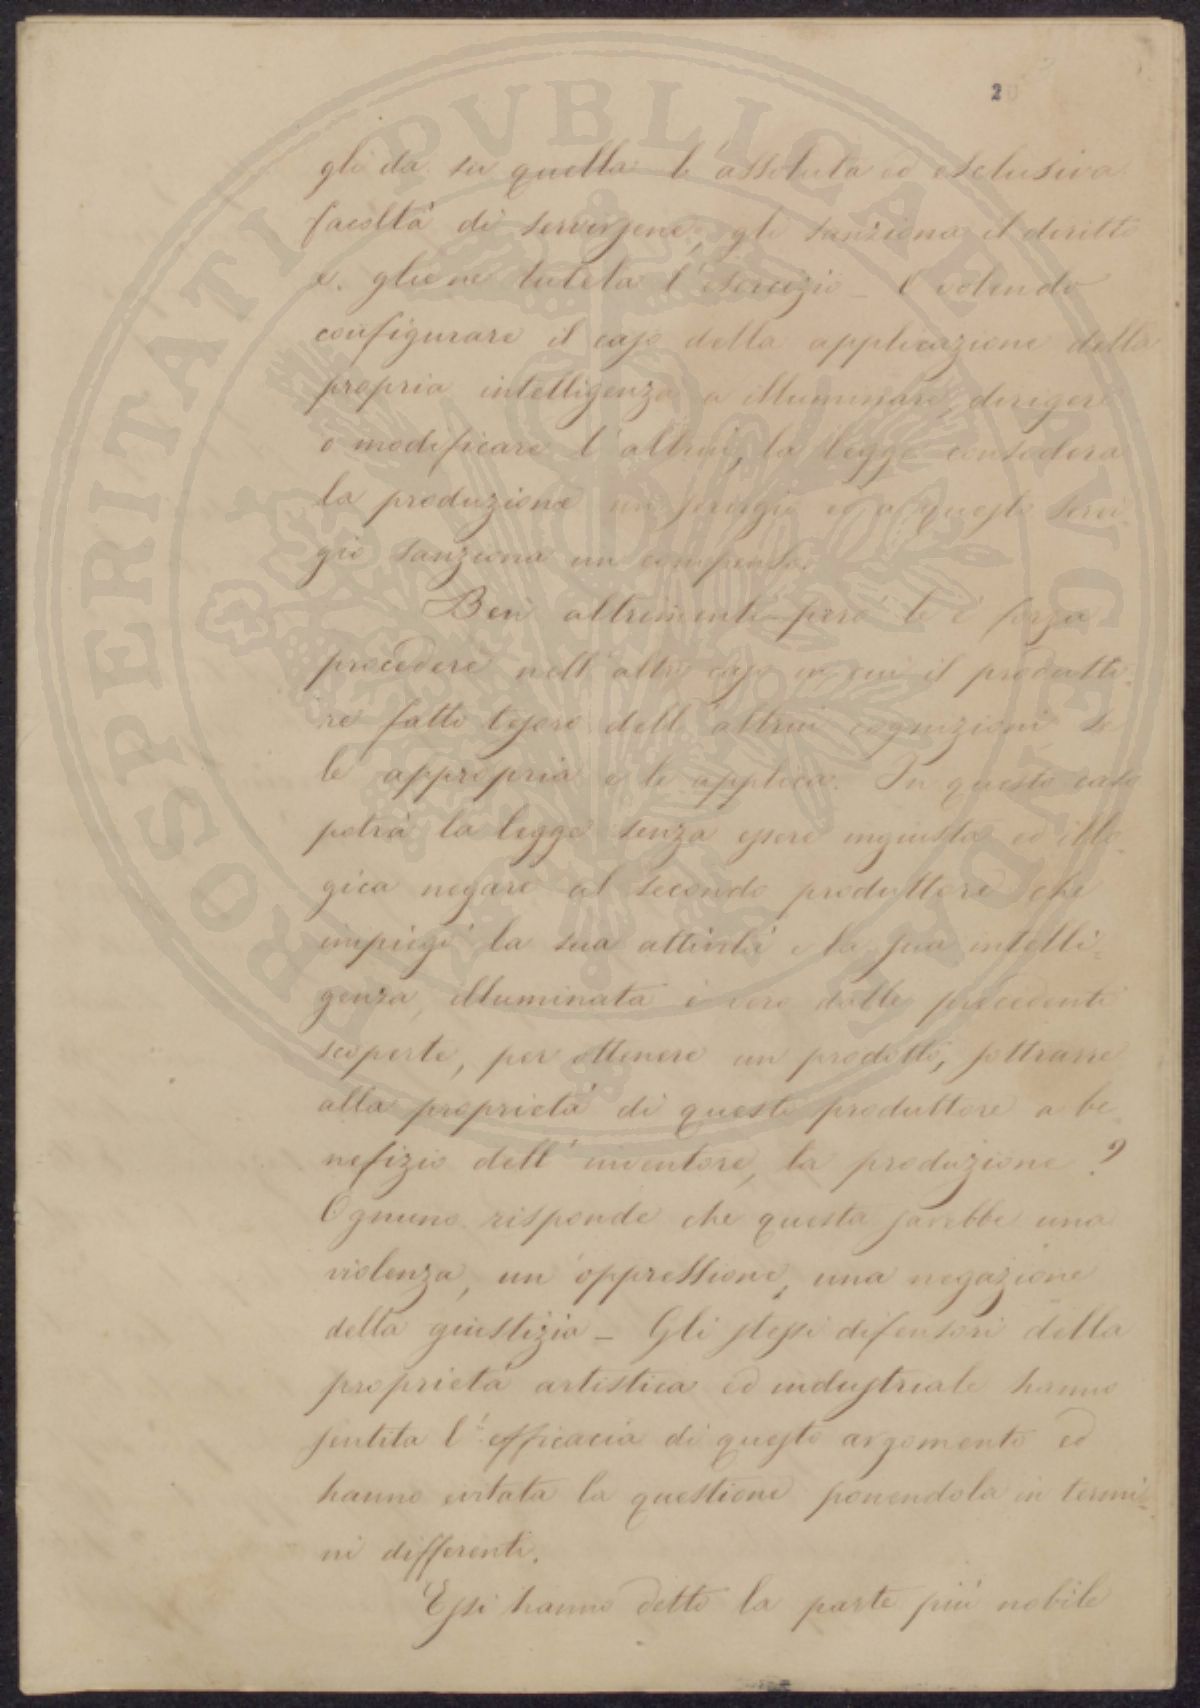 20
gli da su quella l'assoluta ed esclusiva
facoltà di servirsene, gli sanziona il diritto
e gliene tutela l'esercizio – E volendo
configurare il caso della applicazione della
propria intelligenza a illuminare, dirigere
o modificare l'altrui, la legge considera
la produzione un servigio ed a questo servi-
gio sanziona un compenso.
Ben altrimenti però le è forza
procedere nell'altro caso in cui il produtto-
re fatto tesoro dell'altrui cognizioni se
le appropria e le applica. In questo caso
potrà la legge senza essere ingiusta ed illo-
gica negare al secondo produttore che
impiegi la sua attività e la sua intelli-
genza, illuminata è vero dalle precedenti
scoperte, per ottenere un prodotto, sottrarre
alla proprietà di questo produttore a be-
nefizio dell'inventore, la produzione?
Ognuno risponde che questa sarebbe una
violenza, un'oppressione, una negazione
della giustizia – Gli stessi difensori della
proprietà artistica ed industriale hanno
sentita l'efficacia di questo argomento ed
hanno evitata la questione ponendola in termi-
ni differenti.
Essi hanno detto la parte più nobile
PROSPERITATI PVBLICAE AVGENDAE